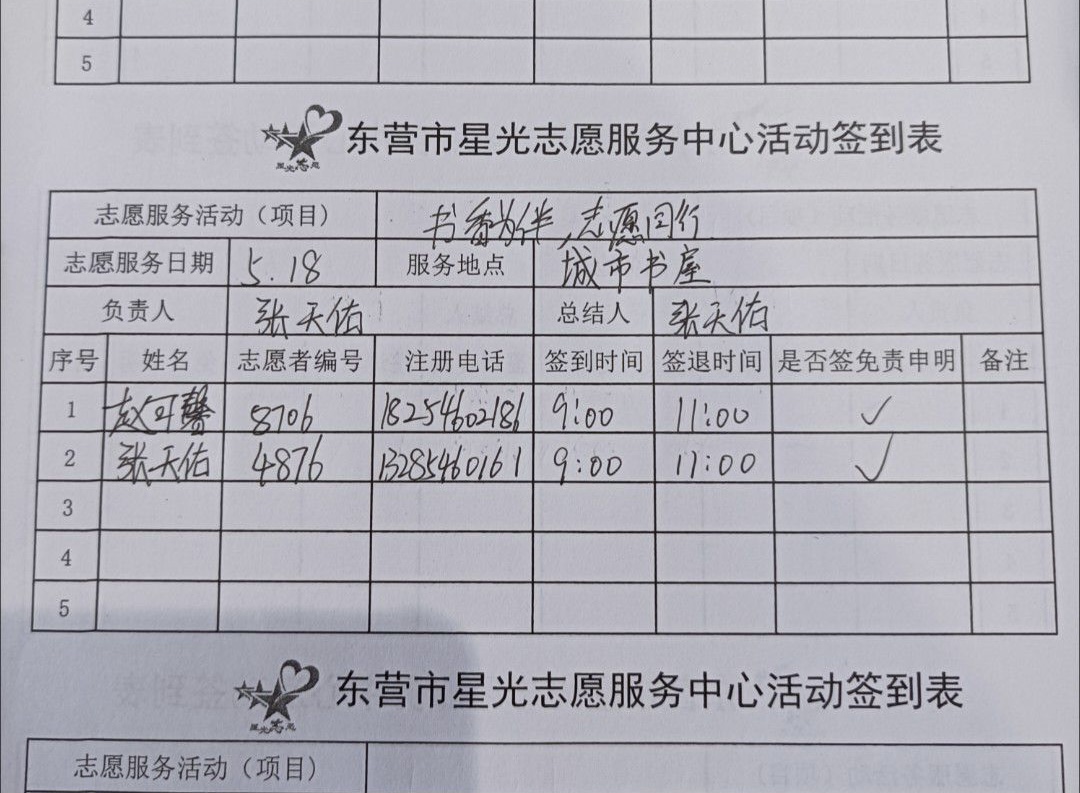 4
5
星光志愿
东营市星光志愿服务中心活动签到表
志愿服务活动（项目） 书香为伴，志愿同行
志愿服务日期 5.18 服务地点 城市书屋
负责人 张天佑 总结人 张天佑
序号 姓名 志愿者编号 注册电话 签到时间 签退时间 是否签免责申明 备注
1 赵可馨 8706 18254602186 9:00 11:00 ✓
2 张天佑 4876 13285460161 9:00 11:00 ✓
3
4
5
星光志愿
东营市星光志愿服务中心活动签到表
志愿服务活动（项目）